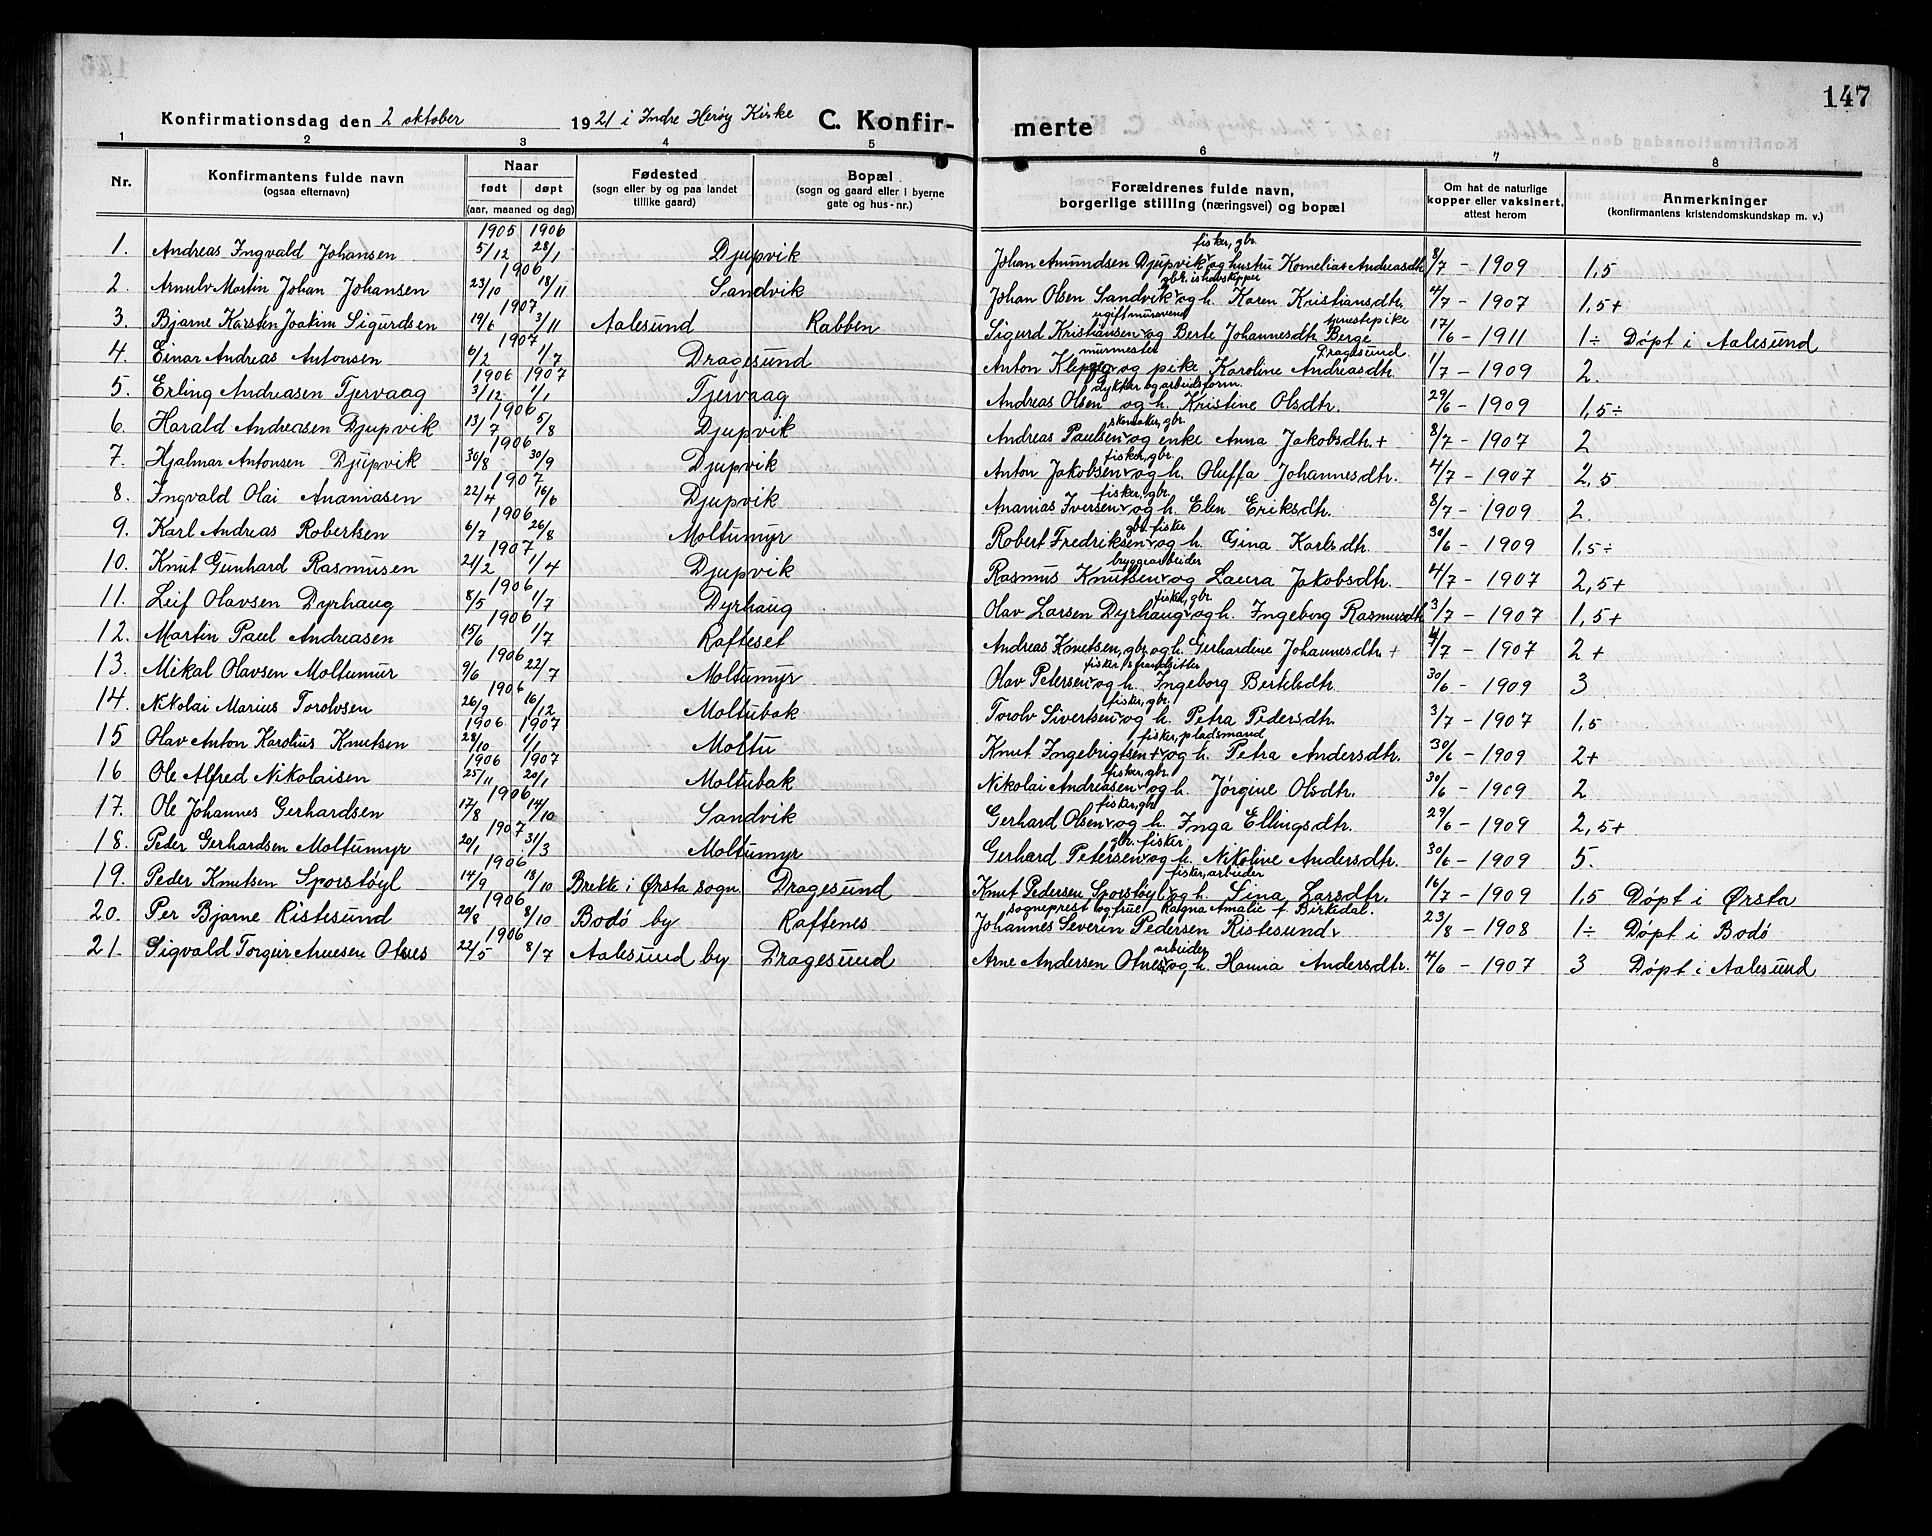 147
Konfirmationsdag den 2 oktober 1921 i Indre Herøy Kirke C. Konfir- merte
1 2 3 4 5 6 7 8
Nr. Konfirmantens fulde navn (ogsaa efternavn) Naar født døpt (aar, maaned og dag) Fødested (sogn eller by og paa landet tillike gaard) Bopæl (sogn og gaard eller i byerne gate og hus-nr.) Forældrenes fulde navn, borgerlige stilling (næringsvei) og bopæl Om hat de naturlige kopper eller vaksinert, attest herom Anmerkninger (konfirmantens kristendomskundskap m. v.)
1905 1906 fisker, gbr.
1. Andreas Ingvald Johansen 5/12 28/1 Djupvik Johan Amundsen Djupvik og hustru Kornelias Andreasdh. 8/7 - 1909 1,5
1906 gbr. ishavskipper
2. Arnulv Martin Johan Johansen 23/10 18/11 Sandvik Johan Olsen Sandvik og h. Karen Kristiansdtr. 4/7 - 1907 1,5+
1907 ugift murersvend tjenestepike
3. Bjarne Karsten Joakim Sigurdsen 19/6 3/11 Aalesund Rabben Sigurd Kristiansen og Berte Johannesdtr. Berge 17/6 - 1911 1÷ Døpt i Aalesund
1907 murmester Dragesund
4. Einar Andreas Antonsen 6/2 1/7 Dragesund Anton Klepp og pike Karoline Andreasdtr. 1/7 - 1909 2.
1906 1907 dykker og arbeidsform.
5. Erling Andreasen Tjervaag 3/12 1/1 Tjervaag Andreas Olsen og h. Kristine Olsdtr. 29/6 - 1909 1,5÷
1906 skomaker, gbr.
6. Harald Andreasen Djupvik 13/7 5/8 Djupvik Andreas Paulsen og enke Anna Jakobsdtr. + 8/7 - 1907 2
1906 fisker, gbr.
7. Hjalmar Antonsen Djupvik 30/8 30/9 Djupvik Anton Jakobsen og h. Oluffa Johannesdtr. 4/7 - 1907 2,5
1907 fisker, gbr.
8. Ingvald Olai Ananiasen 22/4 16/6 Djupvik Ananias Iversen og h. Elen Eriksdtr. 8/7 - 1909 2.
1906 gbr. fisker
9. Karl Andreas Robertsen 6/7 26/8 Moltumyr Robert Fredriksen og h. Gina Karlsdtr. 30/6 - 1909 1,5÷
1907 bryggearbeider
10. Knut Gunhard Rasmusen 21/2 1/4 Djupvik Rasmus Knutsen og Laura Jakobsdtr. 4/7 - 1907 2,5+
1906 fisker, gbr.
11. Leif Olavsen Dyrhaug 8/5 1/7 Dyrhaug Olav Larsen Dyrhaug og h. Ingeborg Rasmusdtr 3/7 - 1907 1,5+
1906
12. Martin Paul Andreasen 15/6 1/7 Rafteset Andreas Knutsen, gbr. og h. Gerhardine Johannesdtr. + 4/7 - 1907 2+
1906 fisker, strandsitter
13. Mikal Olavsen Moltumur 9/6 22/7 Moltumyr Olav Petersen og h. Ingeborg Bertelsdtr. 30/6 - 1909 3
1906 fisker, gbr.
14. Nikolai Marius Torolvsen 26/9 16/12 Moltubak Torolv Sivertsen og h. Petra Pedersdtr. 3/7 - 1907 1,5
1906 1907 fisker, pladsmand
15 Olav Anton Karolius Knutsen 28/10 1/1 Moltu Knut Ingebrigtsen + og h. Petra Andersdtr. 30/6 - 1909 2+
1906 1907 fisker, gbr.
16. Ole Alfred Nikolaisen 25/11 20/1 Moltubak Nikolai Andreasen og h. Jørgine Olsdtr. 30/6 - 1909 2
1906 fisker, gbr
17. Ole Johannes Gerhardsen 17/8 14/10 Sandvik Gerhard Olsen og h. Inga Ellingsdtr. 29/6 - 1909 2,5+
1907 gbr. fisker
18. Peder Gerhardsen Moltumyr 20/1 31/3 Moltumyr Gerhard Petersen og h. Nikoline Andersdtr. 30/6 - 1909 5.
1906 fisker, arbeider
19. Peder Knutsen Sporstøyl 14/9 13/10 Brekke i Ørsta sogn Dragesund Knut Pedersen Sporstøyl og h. Sina Larsdtr. 16/7 - 1909 1,5 Døpt i Ørsta
1906 sogneprest og frue Ragna Amalie f. Birkedal.
20. Per Bjarne Ristesund 20/8 8/10 Bodø by Raftenes Johannes Severin Pedersen Ristesund 23/8 - 1908 1÷ Døpt i Bodø
1906 arbeider
21. Sigvald Torgeir Arnesen Otnes 22/5 8/7 Aalesund by Dragesund Arne Andersen Otnes og h. Hanna Andersdtr. 4/6 - 1907 3 Døpt i Aalesund